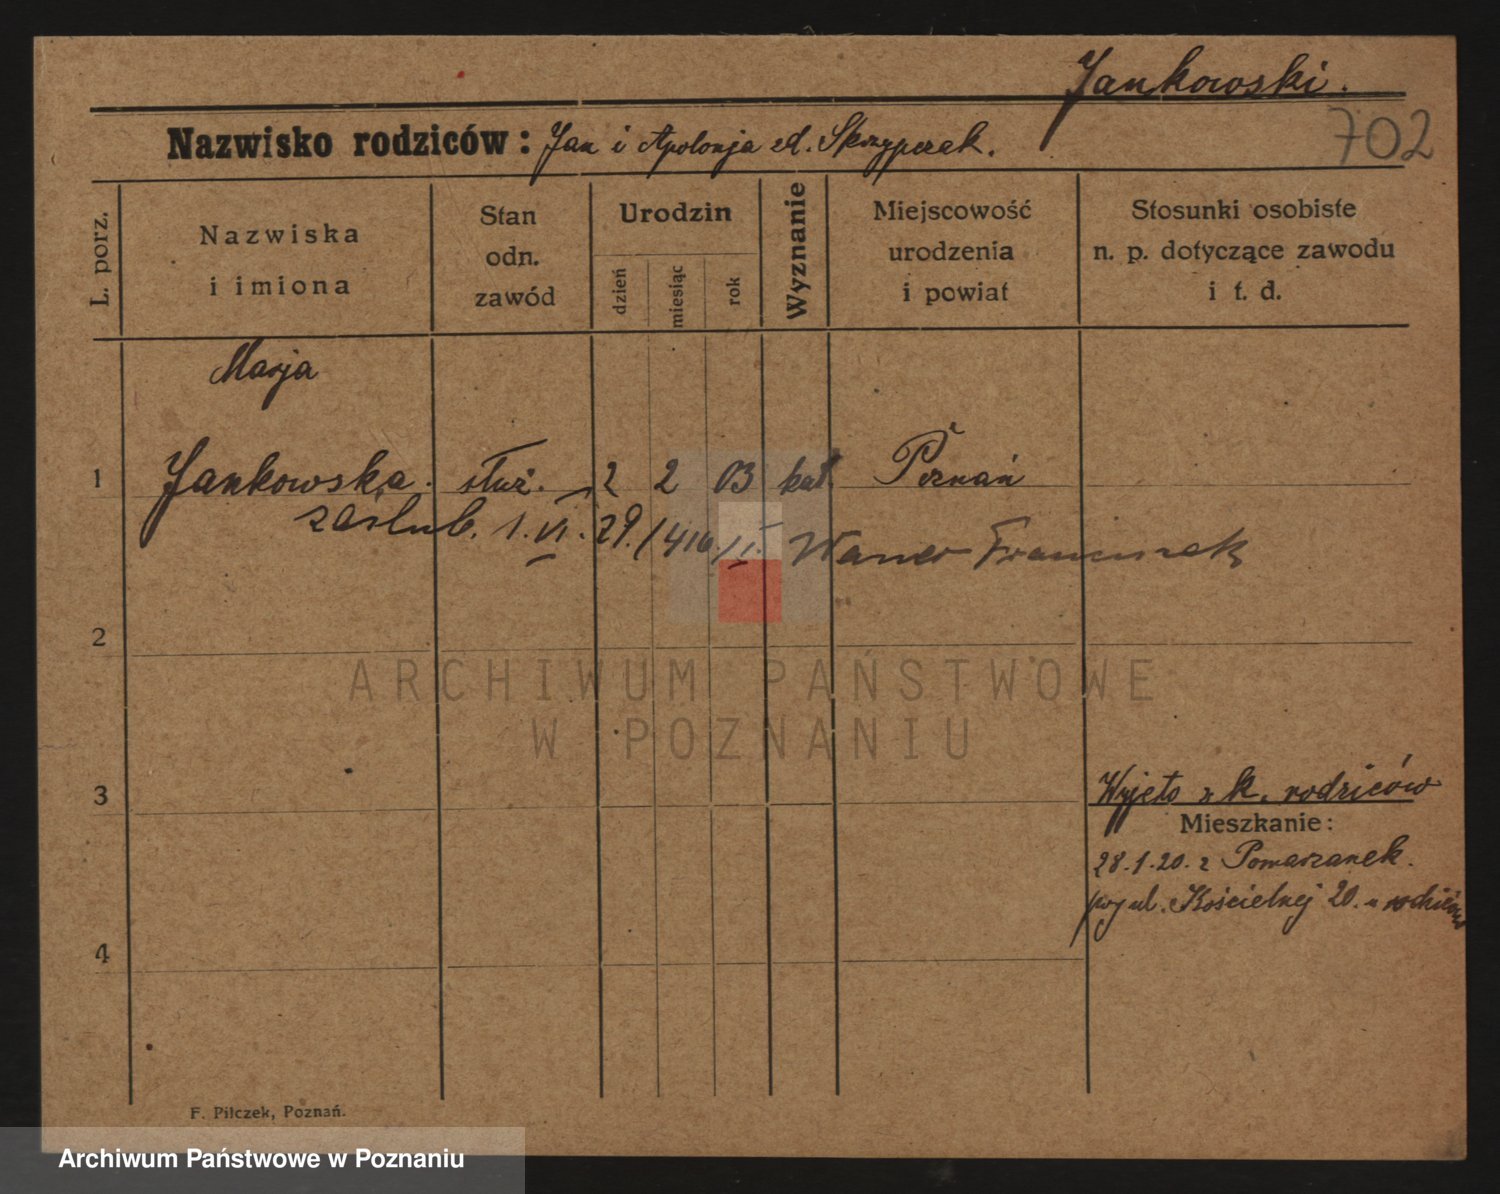 Jankowski.
Nazwisko rodziców: Jan i Apolonja zd. Skrzypczak.
702
L. porz.
Nazwiska
i imiona
Stan
odn.
zawód
Urodzin
dzień
miesiąc
rok
Wyznanie
Miejscowość
urodzenia
i powiat
Stosunki osobiste
n. p. dotyczące zawodu
i t. d.
Marja
1 Jankowska. służ. 2 2 03 kat. Poznań
zaślub. 1. VI. 29. /416/I. Franciszek
2
ARCHIWUM PAŃSTWOWE
W POZNANIU
3
Wyjęto z k. rodziców
Mieszkanie:
28.1.20. z Pomarzanek.
przy ul. Kościelnej 20. u rodziców
4
F. Pilczek, Poznań.
Archiwum Państwowe w Poznaniu